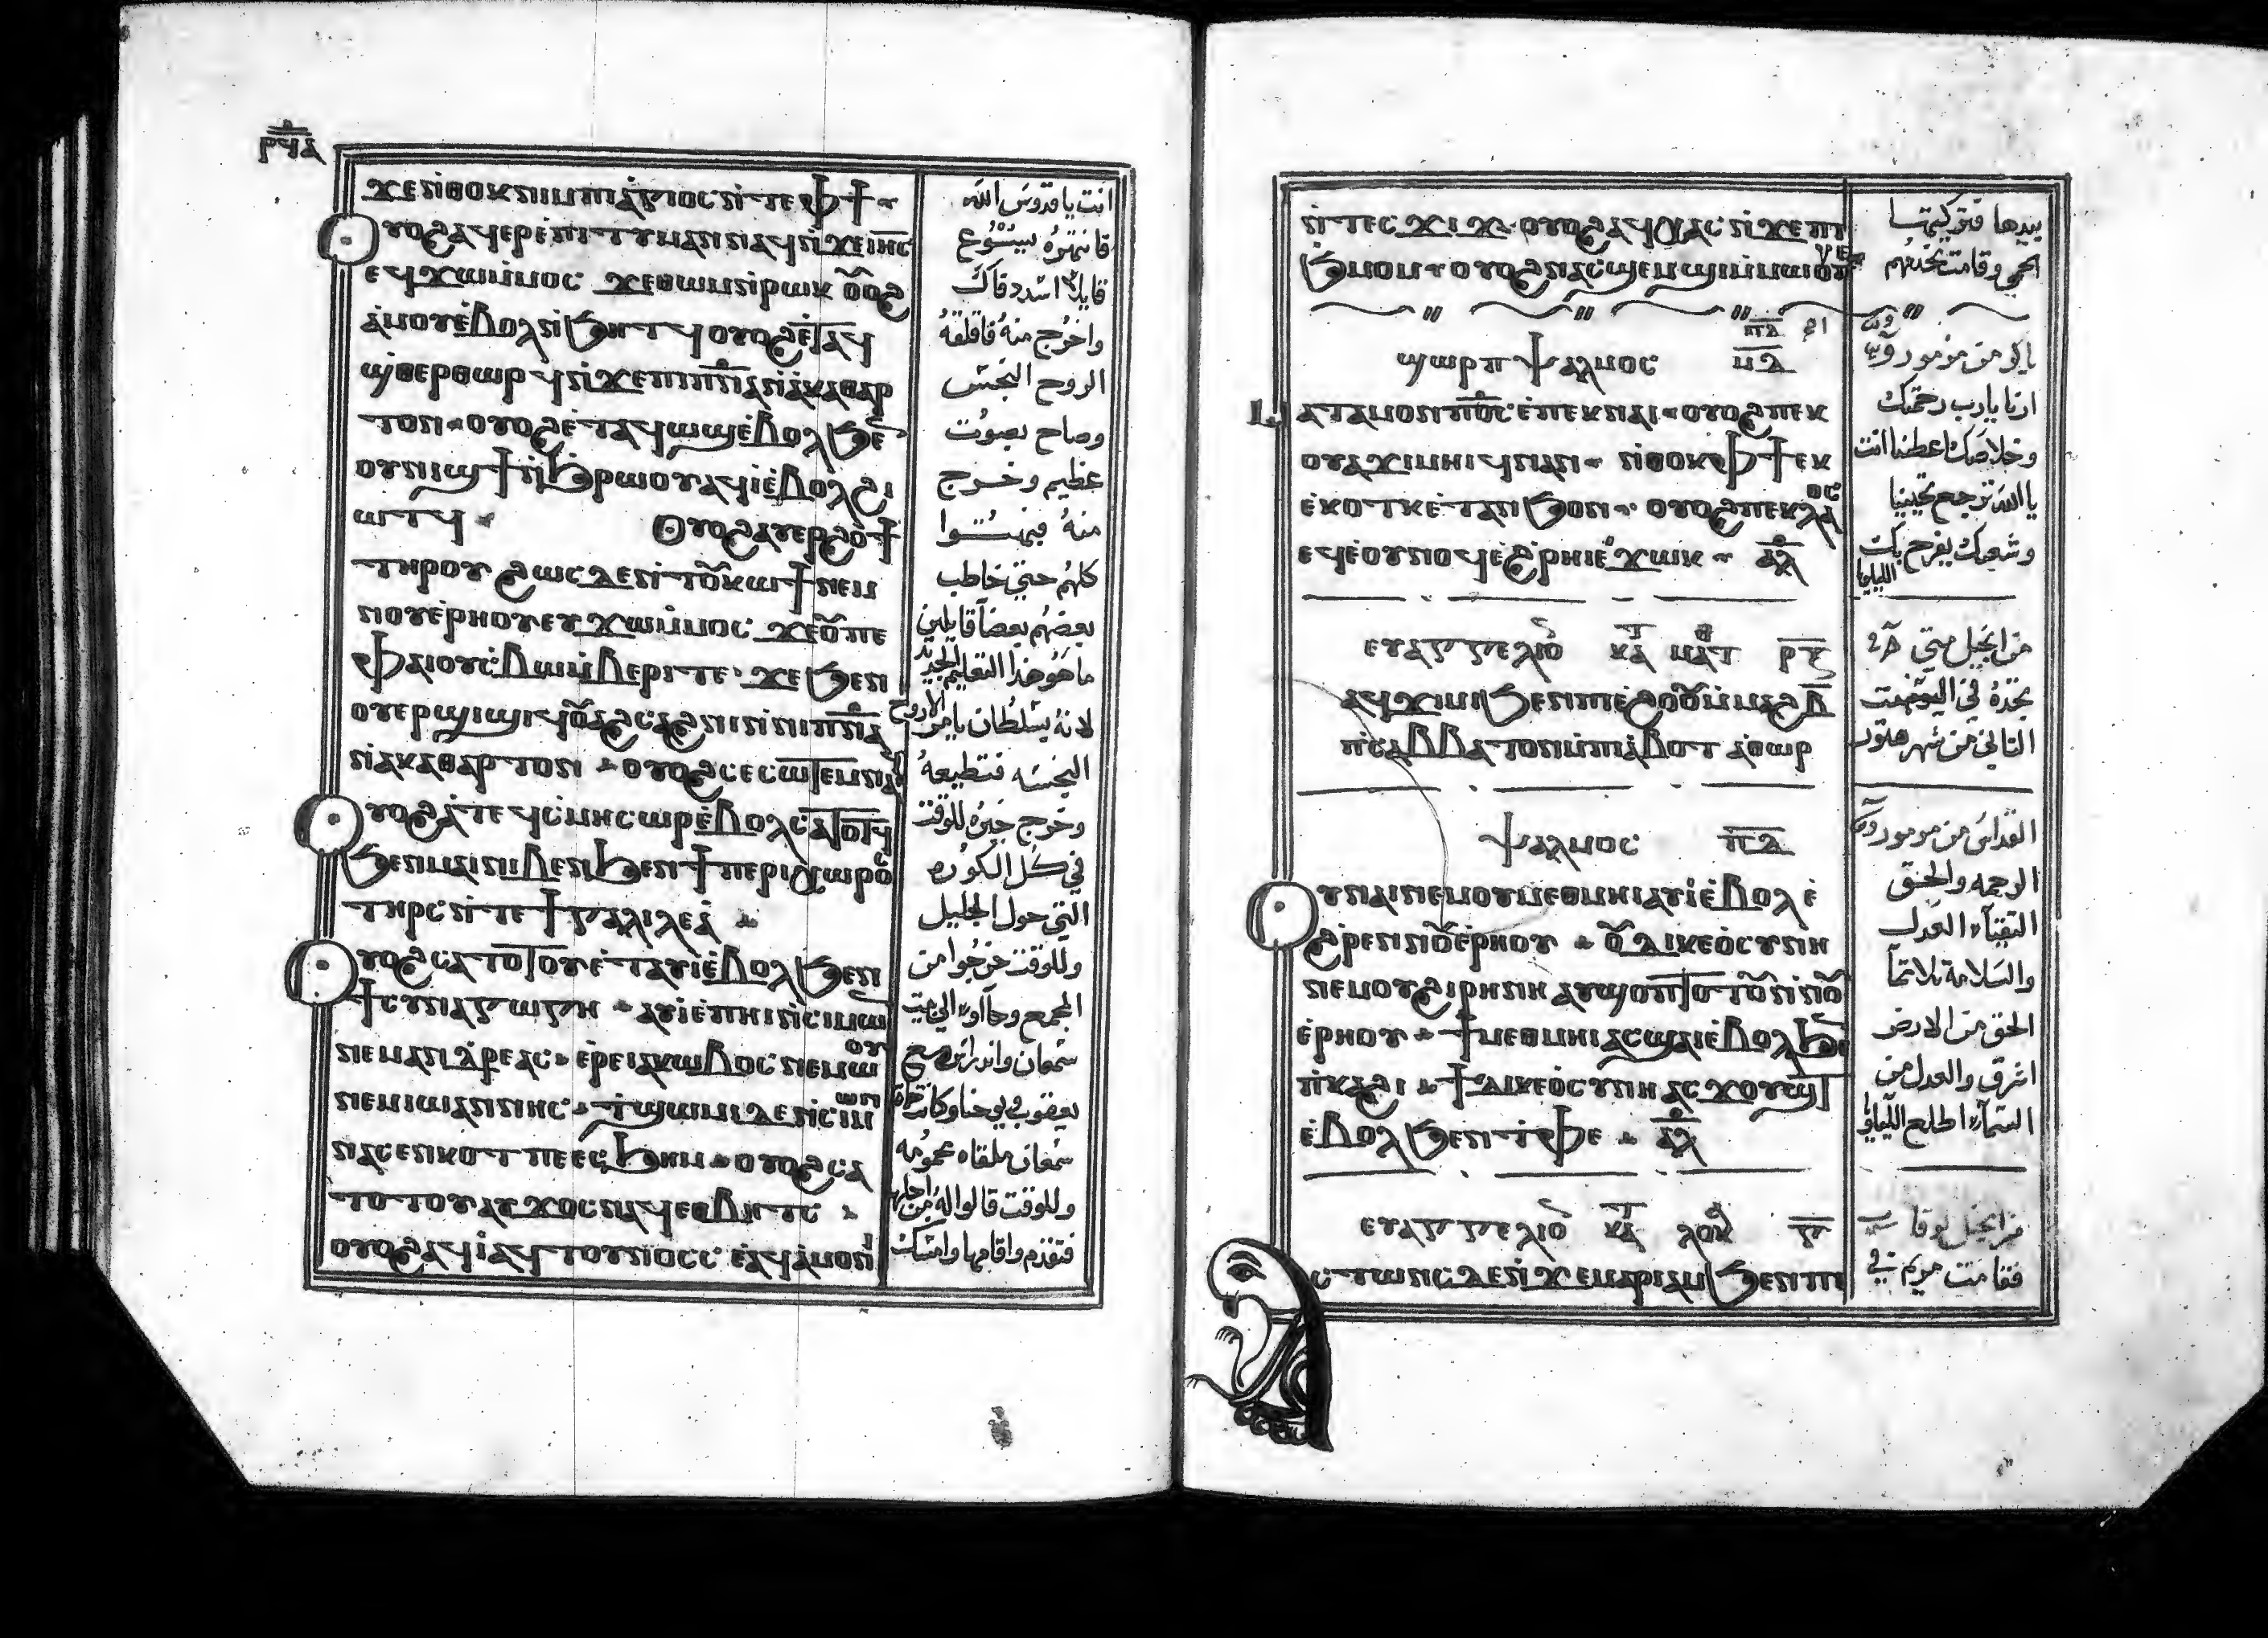 ⲣϥⲇ
ϫⲉⲛⲑⲟⲕ ⲡⲓⲁⲅⲓⲟⲥ ⲛⲧⲉ ⲫϯ
ⲟⲩⲟϩ ⲁϥⲉⲣⲉⲡⲓⲧⲓⲙⲁⲛ ⲛⲁϥ ⲛϫⲉ ⲓⲏⲥ
ⲉϥϫⲱ ⲙⲙⲟⲥ ϫⲉ ⲑⲱⲙ ⲛⲣⲱⲕ ⲟⲩⲟϩ
ⲁⲙⲟⲩ ⲉⲃⲟⲗ ⲛϧⲏⲧϥ ⲟⲩⲟϩ ⲉⲧⲁϥ
ϣⲑⲉⲣⲑⲱⲣϥ ⲛϫⲉ ⲡⲓⲡⲛⲁ ⲛⲁⲕⲁⲑⲁⲣ
ⲧⲟⲛ ⲟⲩⲟϩ ⲉⲧⲁϥⲱϣ ⲉⲃⲟⲗ ϧⲉ
ⲟⲩⲛⲓϣϯ ⲛϧⲣⲱⲟⲩ ⲁϥⲓ ⲉⲃⲟⲗ ϩⲓ
ⲱⲧϥ ⲟⲩⲟϩ ⲁⲩⲉⲣϩⲟϯ
ⲧⲏⲣⲟⲩ ϩⲱⲥⲇⲉ ⲛⲧⲟⲩⲕⲱϯ ⲛⲉⲙ
ⲛⲟⲩⲉⲣⲏⲟⲩ ⲉⲩϫⲱ ⲙⲙⲟⲥ ϫⲉ ⲟⲩ ⲡⲉ
ⲫⲁⲓ ⲟⲩⲥⲃⲱ ⲙⲃⲉⲣⲓ ⲧⲉ ϫⲉ ϧⲉⲛ
ⲟⲩⲉⲣϣⲓϣⲓ ϥⲟⲩⲁϩⲥⲁϩⲛⲓ ⲛⲛⲓⲡⲛⲁ
ⲛⲁⲕⲁⲑⲁⲣⲧⲟⲛ ⲟⲩⲟϩ ⲥⲉⲥⲱⲧⲉⲙ ⲛⲁϥ
ⲟⲩⲟϩ ⲁ ⲧⲉϥⲥⲙⲏ ⲥⲱⲣ ⲉⲃⲟⲗ ⲥⲁⲧⲟⲧϥ
ϧⲉⲛ ⲙⲁⲓ ⲛⲓⲃⲉⲛ ϧⲉⲛ ϯⲡⲉⲣⲓⲭⲱⲣⲟⲥ
ⲧⲏⲣⲥ ⲛⲧⲉ ϯⲅⲁⲗⲓⲗⲉⲁ
ⲟⲩⲟϩ ⲥⲁⲧⲟⲧⲟⲩ ⲉⲧⲁⲩⲓ ⲉⲃⲟⲗ ϧⲉⲛ
ϯⲥⲩⲛⲁⲅⲱⲅⲏ ⲁⲩⲓ ⲉⲡⲏⲓ ⲛⲥⲓⲙⲱ
ⲛⲉⲙ ⲁⲛⲇⲣⲉⲁⲥ ⲉⲣⲉ ⲓⲁⲕⲱⲃⲟⲥ ⲛⲉⲙⲱⲟⲩ
ⲛⲉⲙ ⲓⲱⲁⲛⲛⲏⲥ ϯϣⲱⲙⲓ ⲇⲉ ⲛⲥⲓⲙⲱⲛ
ⲛⲁⲥⲉⲛⲕⲟⲧ ⲡⲉ ⲉⲥϧⲏⲙ ⲟⲩⲟϩ ⲥⲁ
ⲧⲟⲧⲟⲩ ⲁⲩϫⲟⲥ ⲛⲁϥ ⲉⲑⲃⲏⲧⲥ
ⲟⲩⲟϩ ⲁϥⲓ ⲁϥⲧⲟⲩⲛⲟⲥⲥ ⲉⲁϥⲁⲙⲟⲛⲓ
انت يا قدوس الله
فانتهره يسوع
قايلا اسدد فاك
واخرج منه فاقلقه
الروح النجس
وصاح بصوت
عظيم وخرج
منه فبهتوا
كلهم حتي خاطب
بعضهم بعضا قايلين
ما هو هذا التعليم الجديد
لانه بسلطان يامر الارواح
النجسه فتطيعه
وخرج خبره للوقت
في كل الكوره
التي حول الجليل
وللوقت خرجوا من
المجمع وجاوا الي بيت
سمعان واندراوس مع
يعقوب ويوحنا وكانت حماة
سمعان ملقاه محمومه
وللوقت قالوا له من اجلها
فتقدم واقامها وامسك
ⲛⲧⲉⲥϫⲓϫ ⲟⲩⲟϩ ⲁϥⲭⲁⲥ ⲛϫⲉ ⲡⲓ
ϧⲙⲟⲙ ⲟⲩⲟϩ ⲛⲁⲥϣⲉⲙϣⲓ ⲙⲙⲱⲟⲩ
ϣⲱⲣⲡ ⲯⲁⲗⲙⲟⲥ ⲡⲇ
ⲙⲁⲧⲁⲙⲟⲛ ⲡⲟⲥ ⲉⲡⲉⲕⲛⲁⲓ ⲟⲩⲟϩ ⲡⲉⲕ
ⲟⲩϫⲁⲓ ⲙⲏⲓϥ ⲛⲁⲛ ⲛⲑⲟⲕ ⲫϯ ⲉⲕ
ⲉⲕⲟⲧⲕ ⲉⲧⲁⲛϧⲟⲛ ⲟⲩⲟϩ ⲡⲉⲕⲗⲁⲟⲥ
ⲉϥⲉⲟⲩⲛⲟϥ ⲉϩⲣⲏⲓ ⲉϫⲱⲕ ⲁⲗ
ⲉⲩⲁⲅⲅⲉⲗⲓⲟ ⲕⲁ ⲙⲁⲧ
ⲁϥϫⲓⲙⲓ ϧⲉⲛ ⲡⲓⲉϩⲟⲟⲩ ⲙⲙⲁϩⲃ
ⲡⲥⲁⲃⲃⲁⲧⲟⲛ ⲙⲡⲓⲁⲃⲟⲧ ⲁⲑⲱⲣ
ⲯⲁⲗⲙⲟⲥ ⲡⲇ
ⲟⲩⲛⲁⲓ ⲛⲉⲙ ⲟⲩⲙⲉⲑⲙⲏⲓ ⲁⲩⲓ ⲉⲃⲟⲗ ⲉ
ϩⲣⲉⲛ ⲛⲟⲩⲉⲣⲏⲟⲩ ⲟⲩⲇⲓⲕⲉⲟⲥⲩⲛⲏ
ⲛⲉⲙ ⲟⲩϩⲓⲣⲏⲛⲏ ⲁⲩϣⲟⲡⲧⲟⲧⲟⲩ ⲛⲛⲟⲩ
ⲉⲣⲏⲟⲩ ϯⲙⲉⲑⲙⲏⲓ ⲁⲥϣⲁⲓ ⲉⲃⲟⲗ ϧⲉ
ⲡⲕⲁϩⲓ ϯⲇⲓⲕⲉⲟⲥⲩⲛⲏ ⲁⲥϫⲟⲩϣⲧ
ⲉⲃⲟⲗ ϧⲉⲛ ⲧⲫⲉ ⲁⲗ
ⲉⲩⲁⲅⲅⲉⲗⲓⲟ ⲕⲁ ⲗⲟⲩⲕ ⲅ
ⲁⲥⲧⲱⲛⲥ ⲇⲉ ⲛϫⲉ ⲙⲁⲣⲓⲁⲙ ϧⲉⲛ ⲡⲓ
بيدها فتركتها
الحمي وقامت تخدمهم
باكر من مزمور
ارنا يا رب رحمتك
وخلاصك اعطنا انت
يا الله ترجع تحيينا
وشعبك يفرح بك الليلويا
من انجيل متي
تجده في اليوم
الثاني من شهر هتور
القداس من مزمور
الرحمه والحق
التقيا العدل
والسلامة تلاثما
الحق من الارض
اشرق والعدل من
السماء اطلع الليلويا
من انجيل لوقا
فقامت مريم في